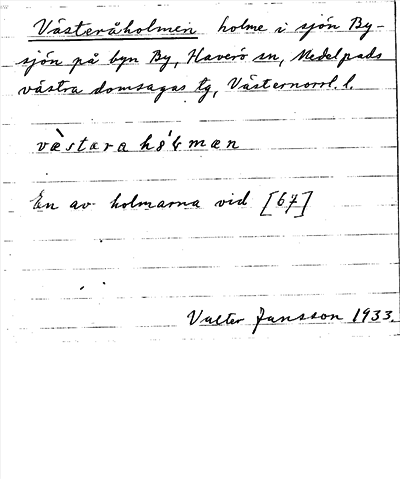 Västeråholmen holme i sjön By-
sjön på byn By, Haverö sn, Medelpads
västra domsagas tg, Västernorrl. l.
væ̀stara hó̵ɭmæn
En av holmarna vid [67]
Valter Jansson 1933.